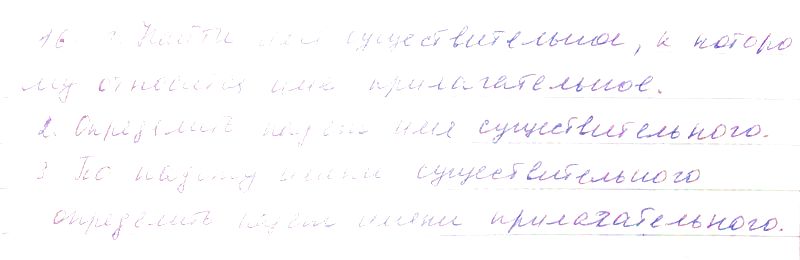 16. 1. Найти имя существительное, к которо
му относится имя прилагательное.
2. Определить падеж имя существительного.
3. По падежу имени существительного
определить падеж имени прилагательного.